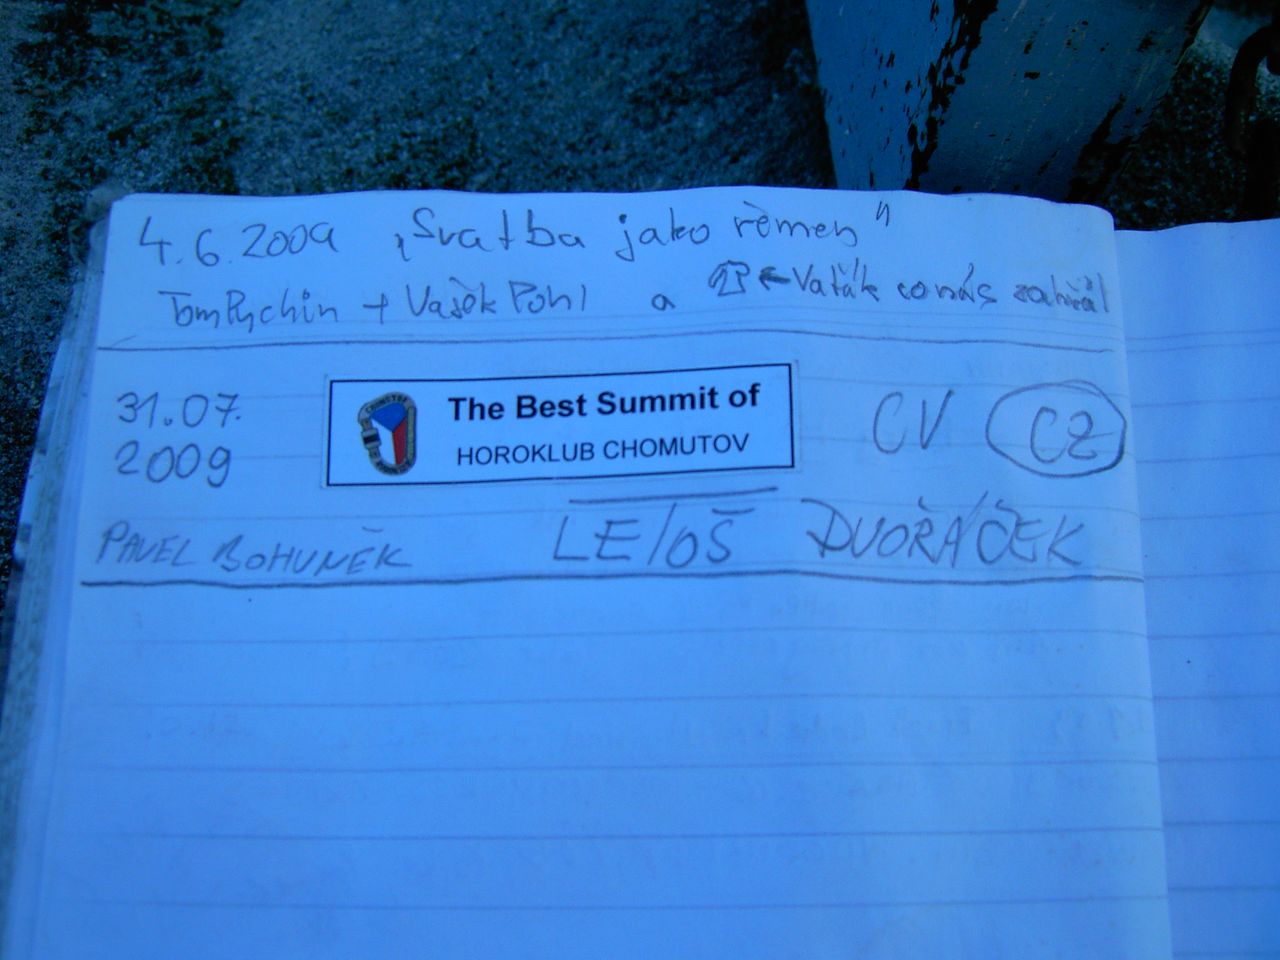 4.6.2009 „Svatba jako řemen"
Tom Pychin + Vašek Pohl a ←Vaťák co nás
31.07.
2009
The Best Summit of
HOROKLUB CHOMUTOV
CV CZ
PAVEL BOHUNĚK LE/OŠ DVOŘÁČEK